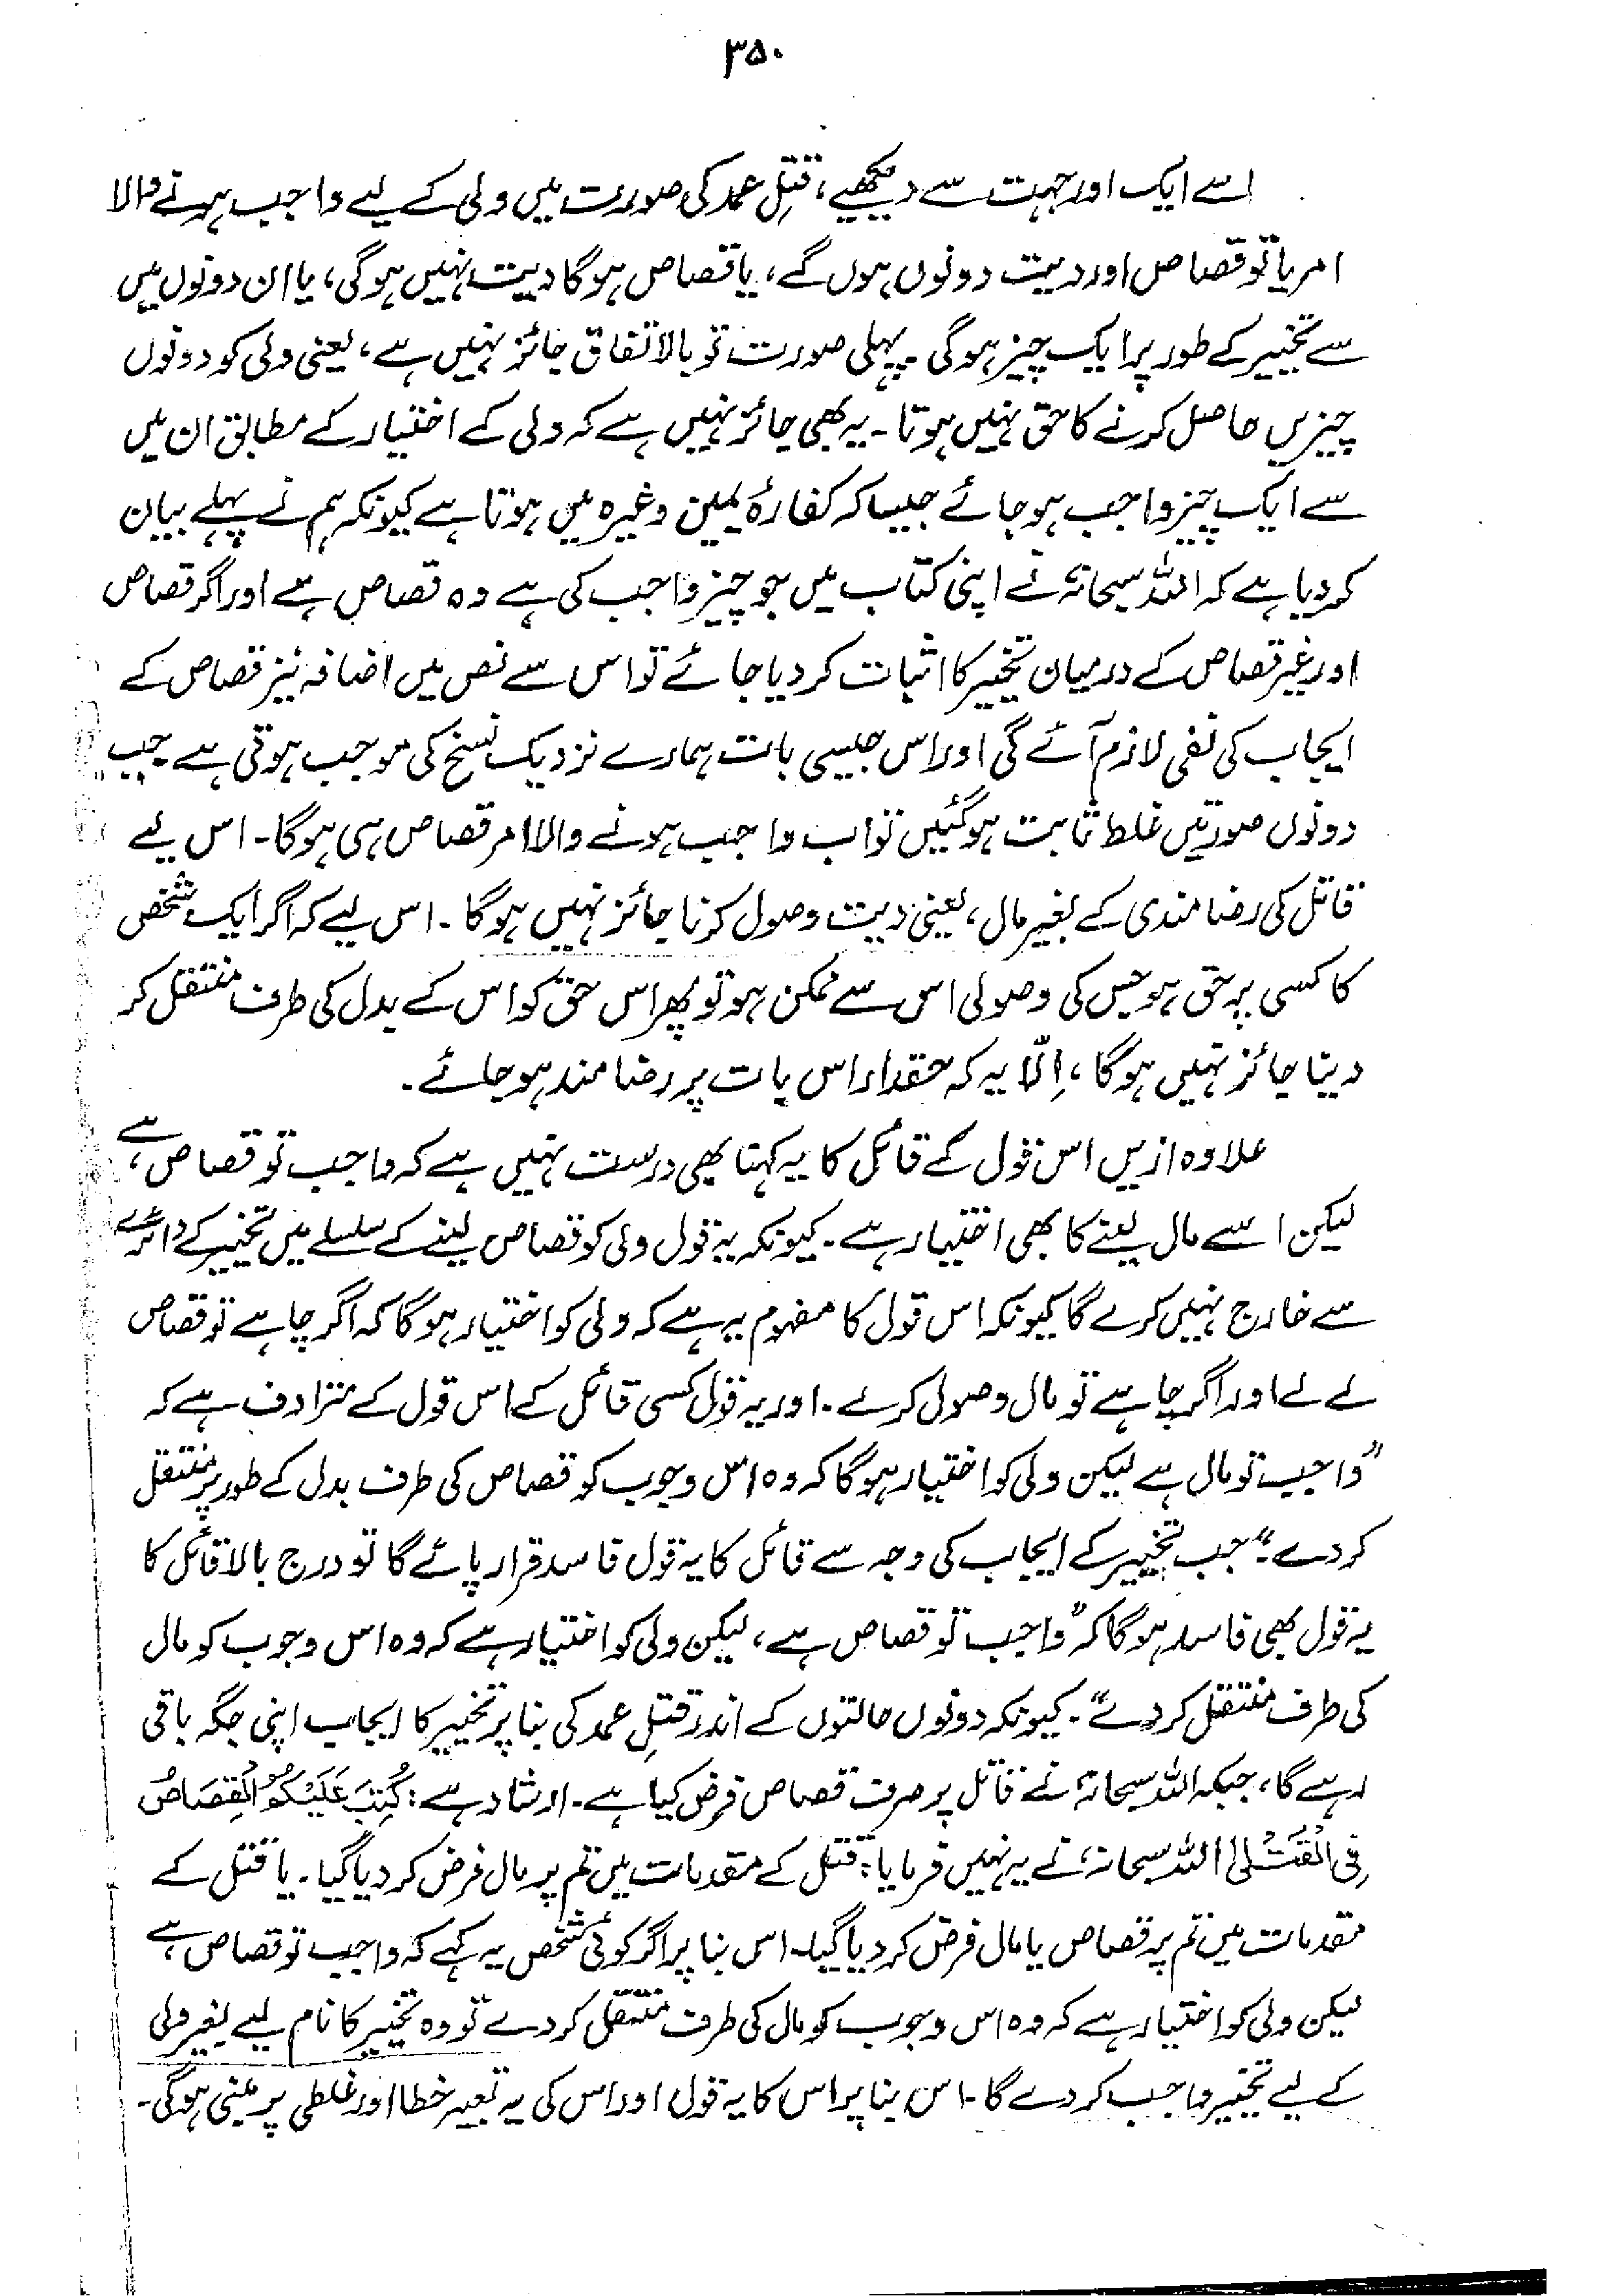 ۳۵۰
اسے ایک اور جہت سے دیکھیے، قتلِ عمد کی صورت میں ولی کے لیے واجب ہونے والا
امر یا تو قصاص اور دیت دونوں ہوں گے، یا قصاص ہوگا دیت نہیں ہوگی، یا ان دونوں میں
سے تخییر کے طور پر ایک چیز ہوگی۔ پہلی صورت تو بالاتفاق جائز نہیں ہے، یعنی ولی کو دونوں
چیزیں حاصل کرنے کا حق نہیں ہوتا۔ یہ بھی جائز نہیں ہے کہ ولی کے اختیار کے مطابق ان میں
سے ایک چیز واجب ہو جائے جیسا کہ کفارۂ یمین وغیرہ میں ہوتا ہے کیونکہ ہم نے پہلے بیان
کر دیا ہے کہ اللہ سبحانہٗ نے اپنی کتاب میں جو چیز واجب کی ہے وہ قصاص ہے اور اگر قصاص
اور غیر قصاص کے درمیان تخییر کا اثبات کر دیا جائے تو اس سے نص میں اضافہ نیز قصاص کے
ایجاب کی نفی لازم آئے گی اور اس جیسی بات ہمارے نزدیک نسخ کی موجب ہوتی ہے۔ جب یہ
دونوں صورتیں غلط ثابت ہوگئیں تو اب واجب ہونے والا امر قصاص ہی ہوگا۔ اس لیے
قاتل کی رضامندی کے بغیر مال، یعنی دیت وصول کرنا جائز نہیں ہوگا۔ اس لیے کہ اگر ایک شخص
کا کسی پر حق ہو جس کی وصولی اس سے ممکن ہو تو پھر اس حق کو اس کے بدل کی طرف منتقل کر
دینا جائز نہیں ہوگا، اِلّا یہ کہ حقدار اس بات پر رضامند ہو جائے۔
علاوہ ازیں اس قول کے قائل کا یہ کہنا بھی درست نہیں ہے کہ واجب تو قصاص ہے،
لیکن اسے مال لینے کا بھی اختیار ہے۔ کیونکہ یہ قول ولی کو قصاص لینے کے سلسلے میں تخییر کے دائرے
سے خارج نہیں کرے گا کیونکہ اس قول کا مفہوم یہ ہے کہ ولی کو اختیار ہوگا کہ اگر چاہے تو قصاص
لے لے اور اگر چاہے تو مال وصول کرلے۔ اور یہ قول کسی قائل کے اس قول کے مترادف ہے کہ
”واجب تو مال ہے لیکن ولی کو اختیار ہوگا کہ وہ اس وجوب کو قصاص کی طرف بدل کے طور پر منتقل
کردے۔“ جب تخییر کے ایجاب کی وجہ سے قائل کا یہ قول فاسد قرار پائے گا تو درج بالا قائل کا
یہ قول بھی فاسد ہوگا کہ ”واجب تو قصاص ہے، لیکن ولی کو اختیار ہے کہ وہ اس وجوب کو مال
کی طرف منتقل کردے“۔ کیونکہ دونوں حالتوں کے اندر قتلِ عمد کی بنا پر تخییر کا ایجاب اپنی جگہ باقی
رہے گا، جبکہ اللہ سبحانہٗ نے قاتل پر صرف قصاص فرض کیا ہے۔ ارشاد ہے: كُتِبَ عَلَيْكُمُ الْقِصَاصُ
فِي الْقَتْلٰى اللہ سبحانہٗ نے یہ نہیں فرمایا: قتل کے مقدمات میں تم پر مال فرض کر دیا گیا۔ یا قتل کے
مقدمات میں تم پر قصاص یا مال فرض کر دیا گیا۔ اس بنا پر اگر کوئی شخص یہ کہے کہ واجب تو قصاص ہے
لیکن ولی کو اختیار ہے کہ وہ اس وجوب کو مال کی طرف منتقل کردے تو وہ تخییر کا نام لیے بغیر ولی
کے لیے تخییر واجب کردے گا۔ اس بنا پر اس کا یہ قول اور اس کی یہ تعبیر خطا اور غلطی پر مبنی ہوگی۔